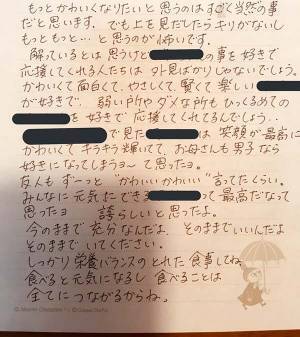 もっとかわいくなりたいと思うのはすごく当然の事
だと思います。でも上を見だしたらキリがないし
もっともっと…と思うのが怖いです。
解っているとは思うけど の事を好きで
応援してくれる人たちは外見ばかりじゃないでしょう。
かわいくて面白くて、やさしくて、賢くて楽しい
が好きで、弱い所やダメな所もひっくるめての
を好きで応援してくれてるんでしょう..
で見た は笑顔が最高に
かわいくてキラキラ輝いてて、お母さんも男子なら
好きになってしまうョ〜て思ったョ。
友人もずーっと"かわいいかわいい"言ってたくらい。
みんなに元気にできる って最高だなって
思ったョ 誇らしいと思ったよ。
今のままで充分なんだよ。そのままでいいんだよ
そのままでいてください。
しっかり栄養バランスのとれた食事してね
食べると元気になるし食べることは
全てにつながるからね。